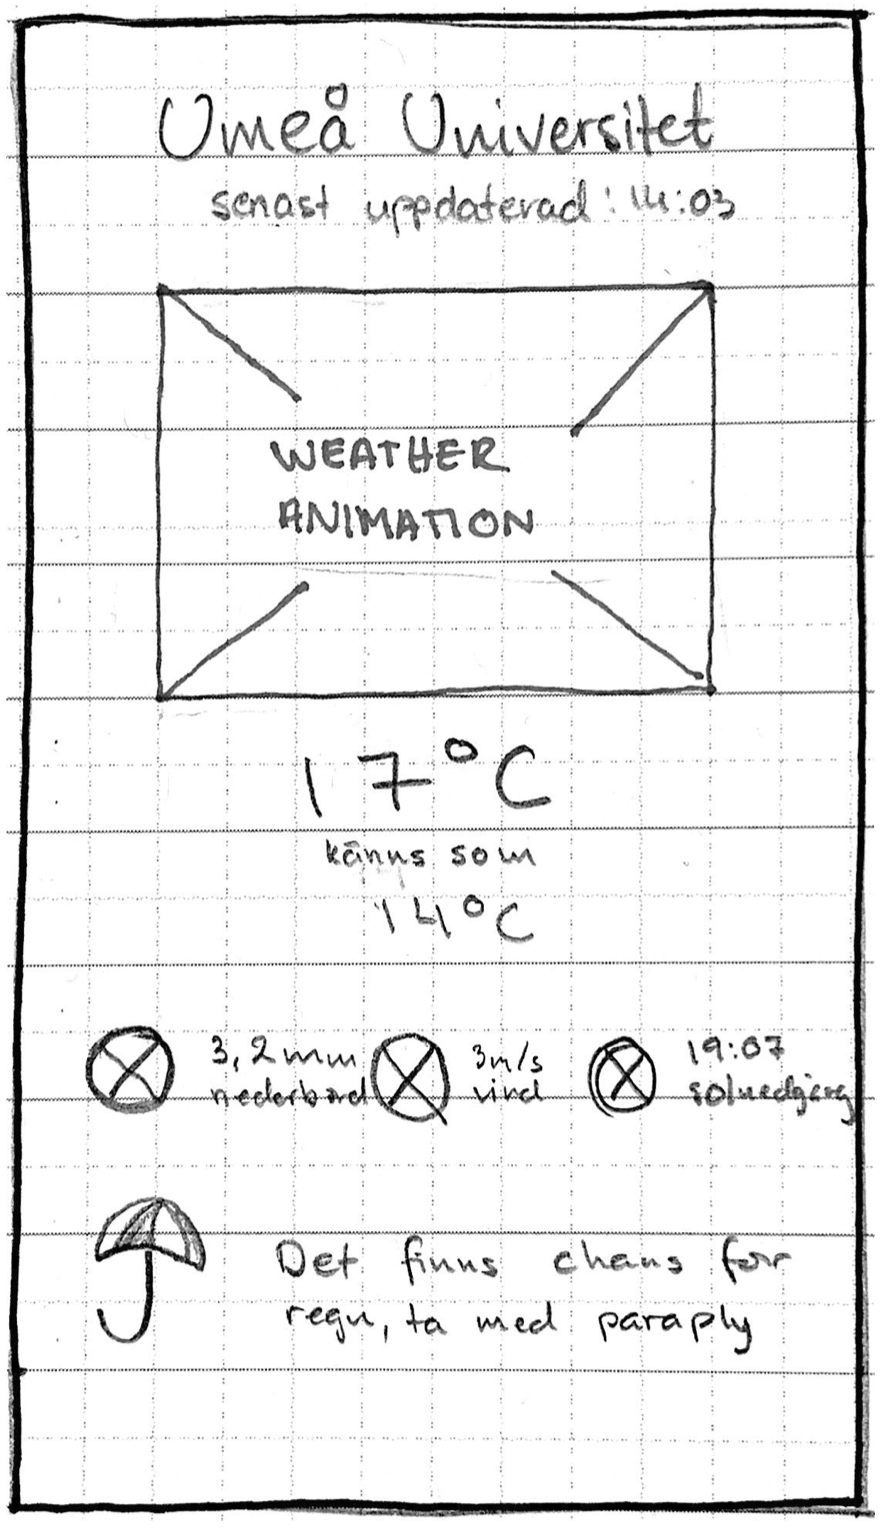 Umeå Universitet
senast uppdaterad: 14:03
WEATHER
ANIMATION
17°C
känns som
14°C
3,2mm
nederbörd
3m/s
vind
19:07
solnedgång
Det finns chans för
regn, ta med paraply